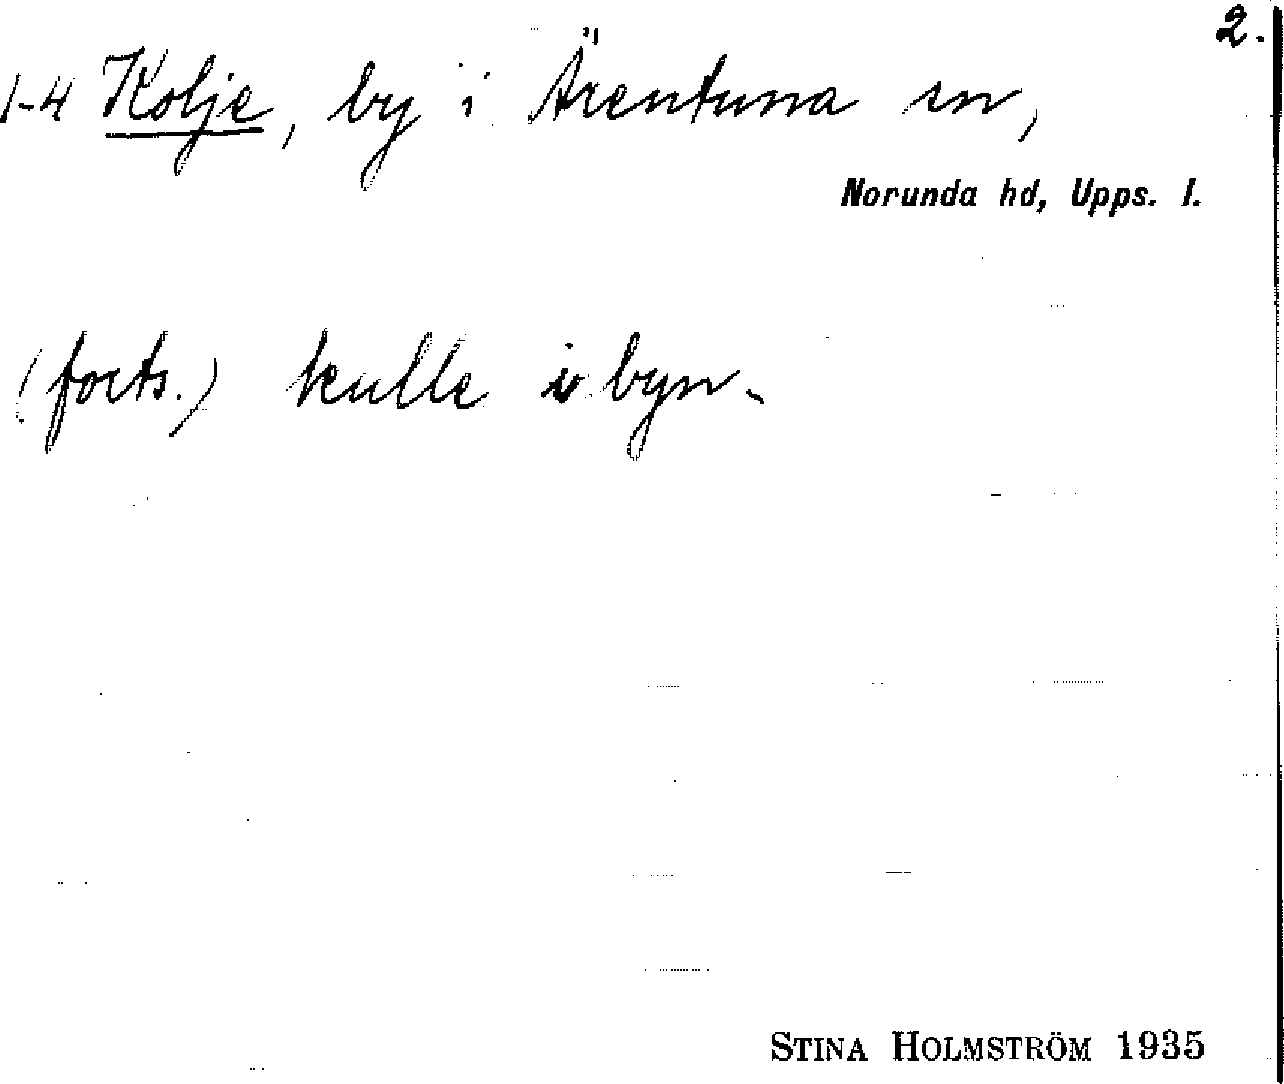 2.
1-4 Kolje, by i Ärentuna sn,
Norunda hd, Upps. l.
(forts.) kulle i byn.
STINA HOLMSTRÖM 1935